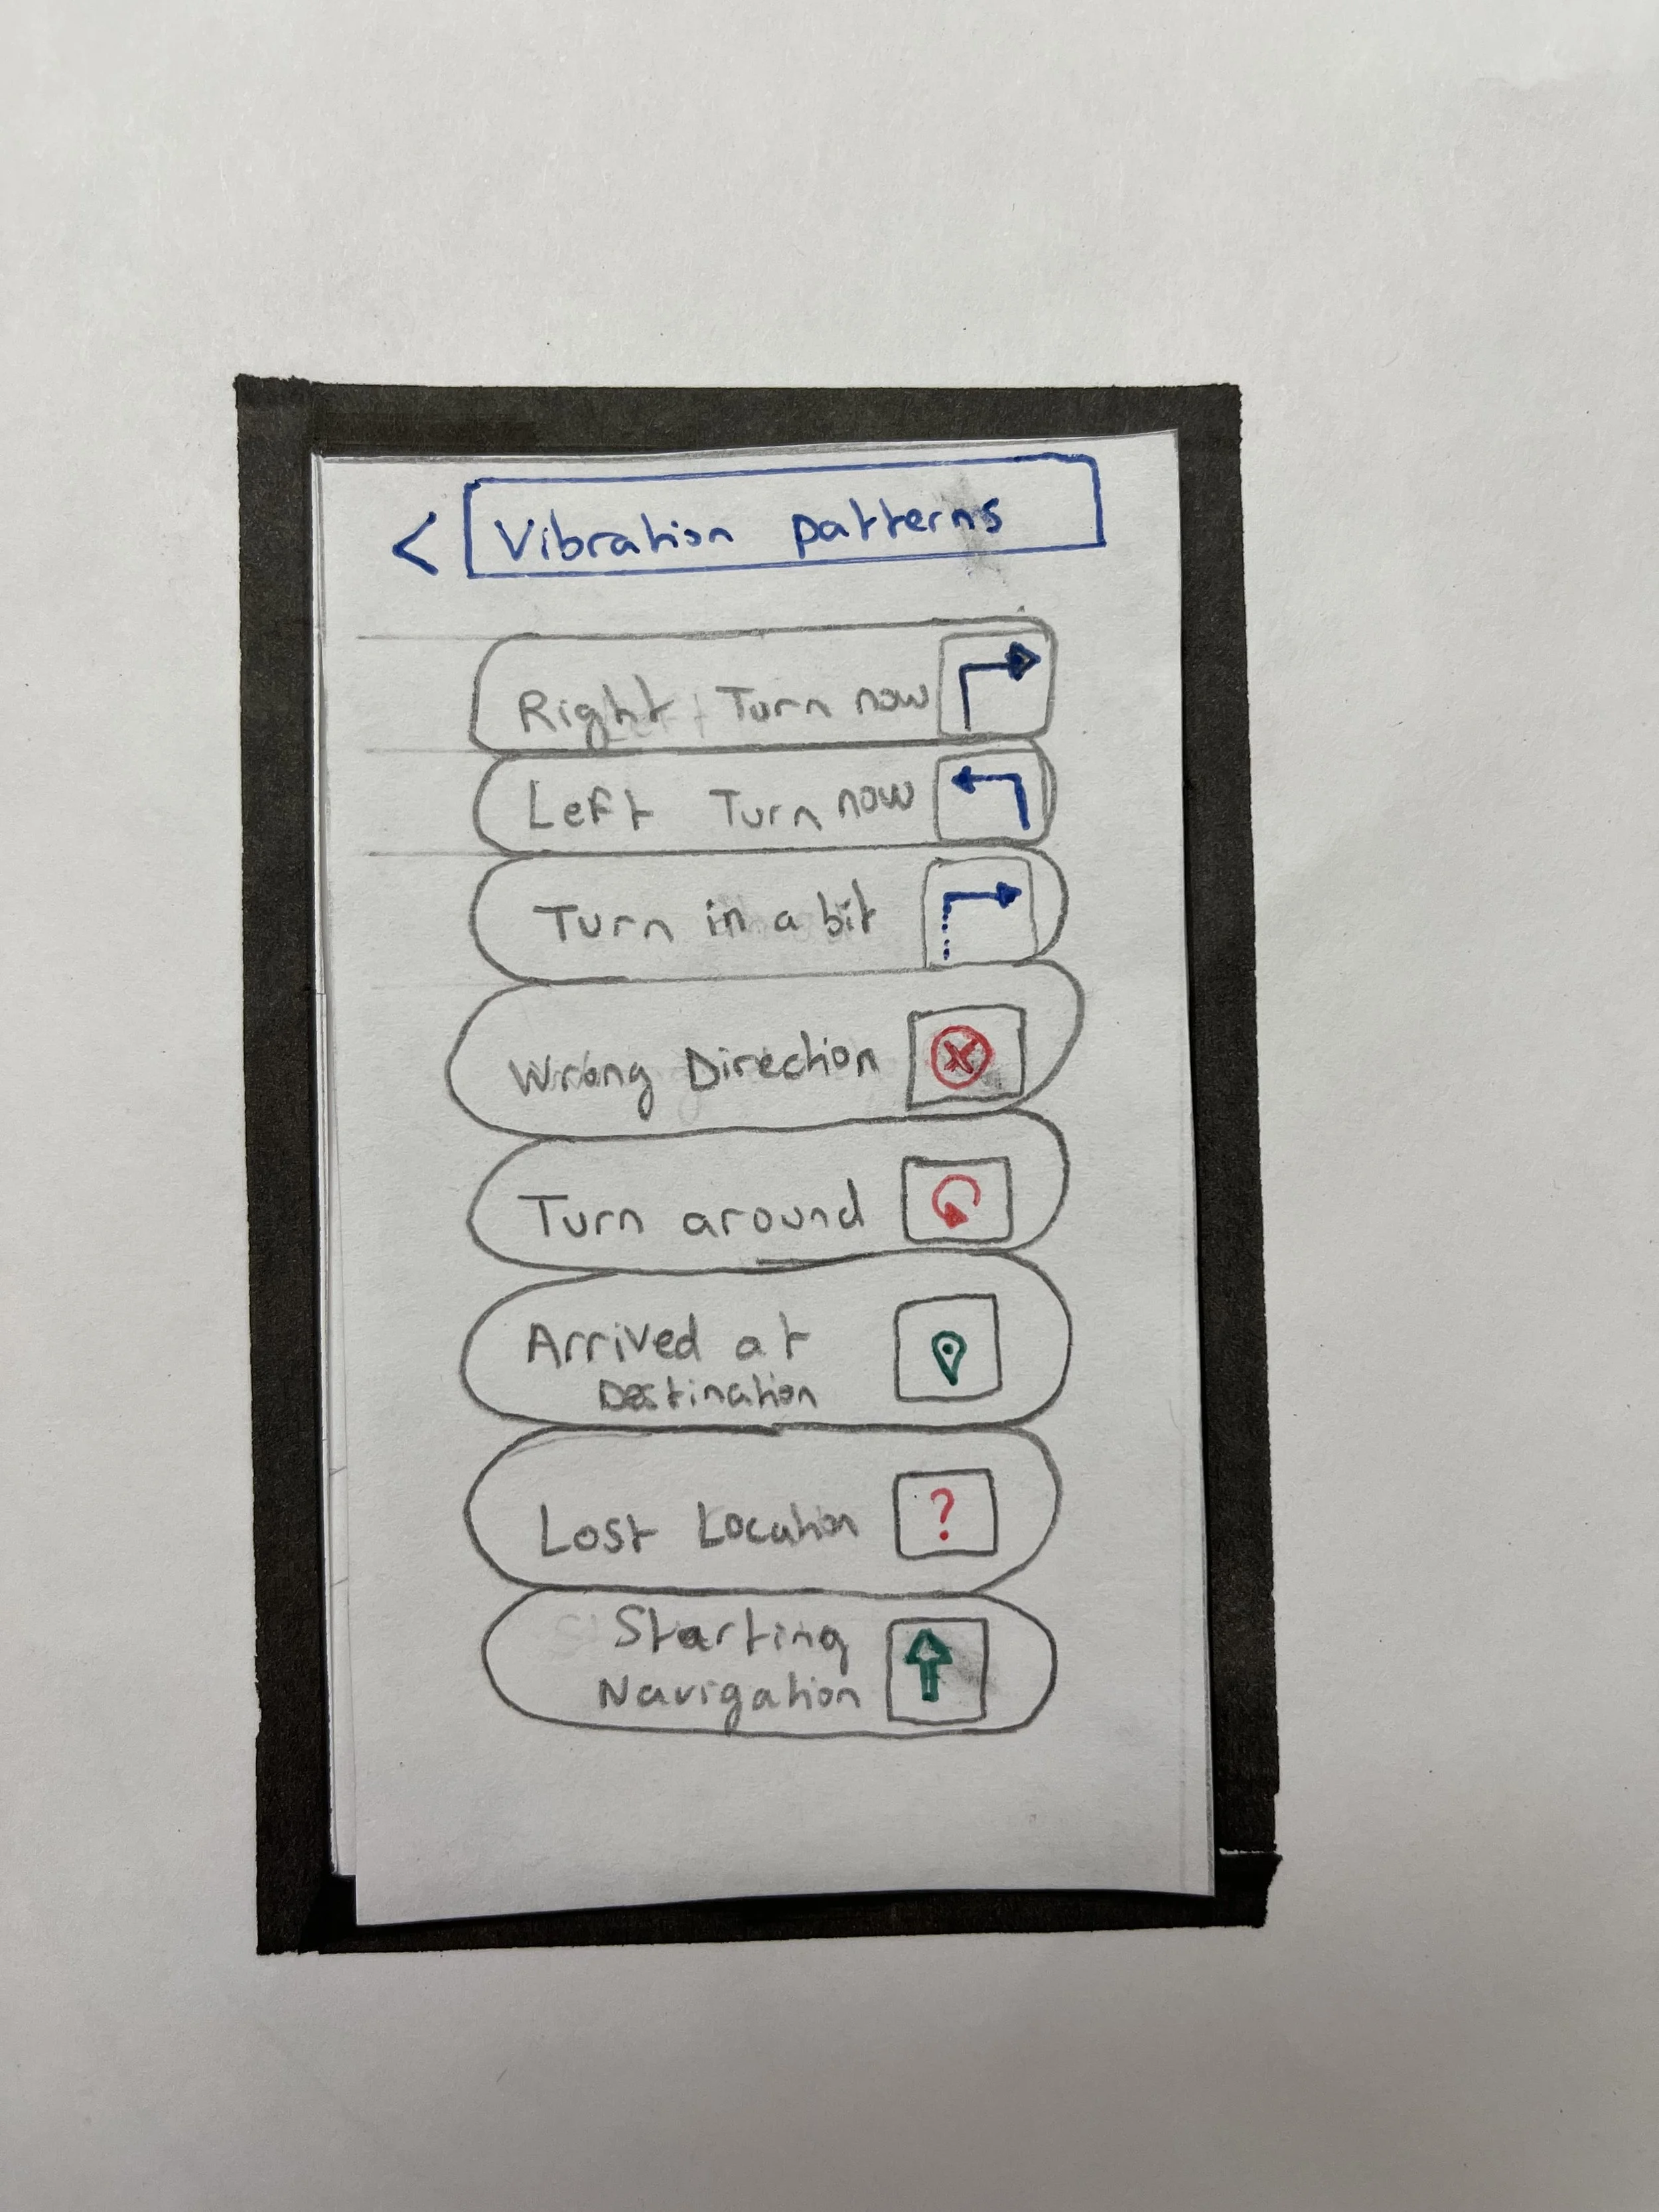 < Vibration patterns
Right Turn now
Left Turn now
Turn in a bit
Wrong Direction
Turn around
Arrived at
Destination
Lost Location
?
Starting
Navigation